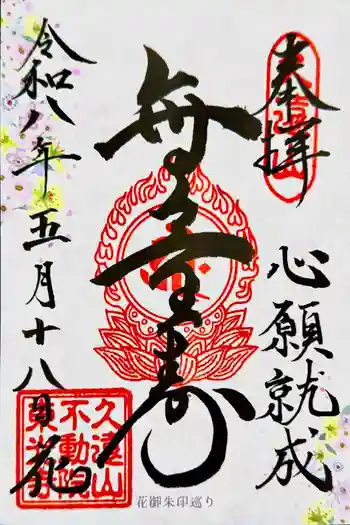 奉拝
心願就成
無量寿
令和八年五月十八日
花
久遠山
不動院
花御朱印巡り